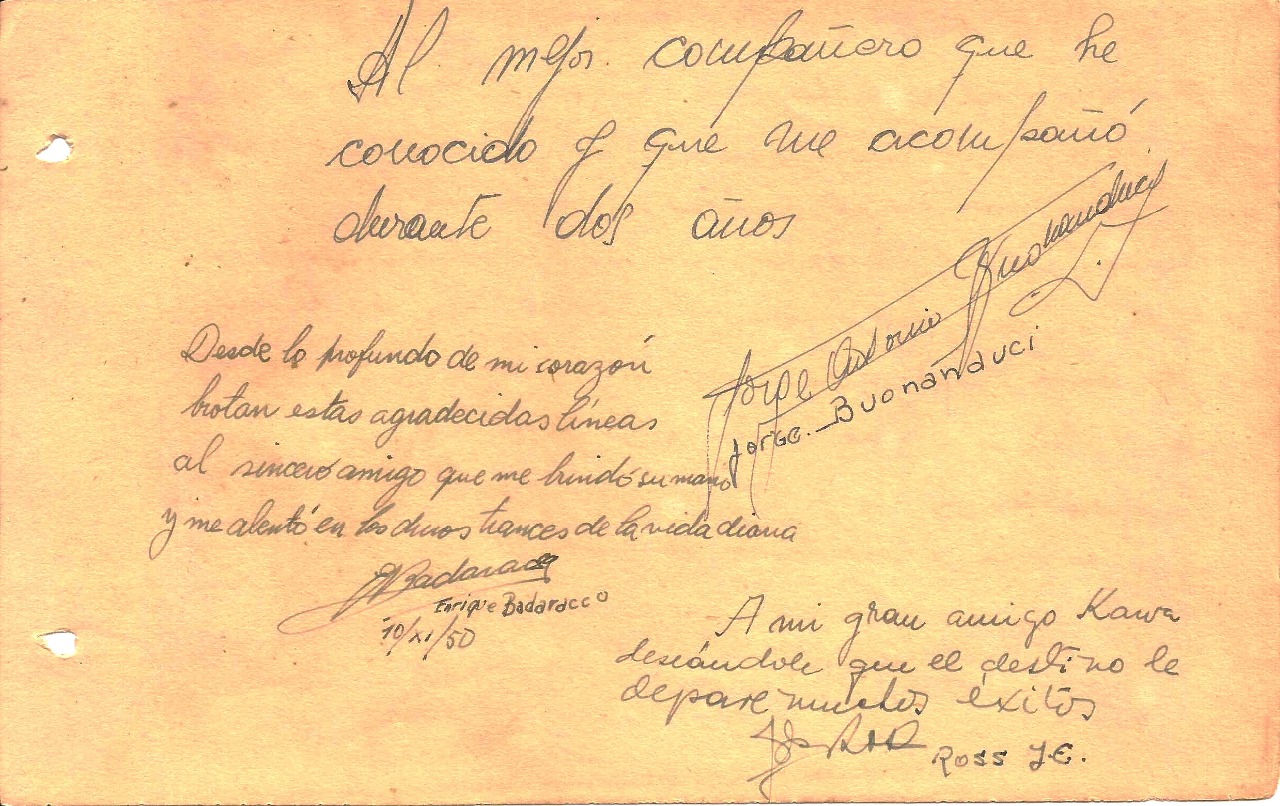 Al mejor compañero que he
conocido y que me acompañó
durante dos años
Jorge Antonio Buonanduci
Jorge Buonánduci
Desde lo profundo de mi corazón
brotan estas agradecidas líneas
al sincero amigo que me brindó su mano
y me alentó en los duros trances de la vida diaria
Badaracco
Enrique Badaracco
10/XI/50
A mi gran amigo Kawa
deseándole que el destino le
depare muchos éxitos
Ross J.E.